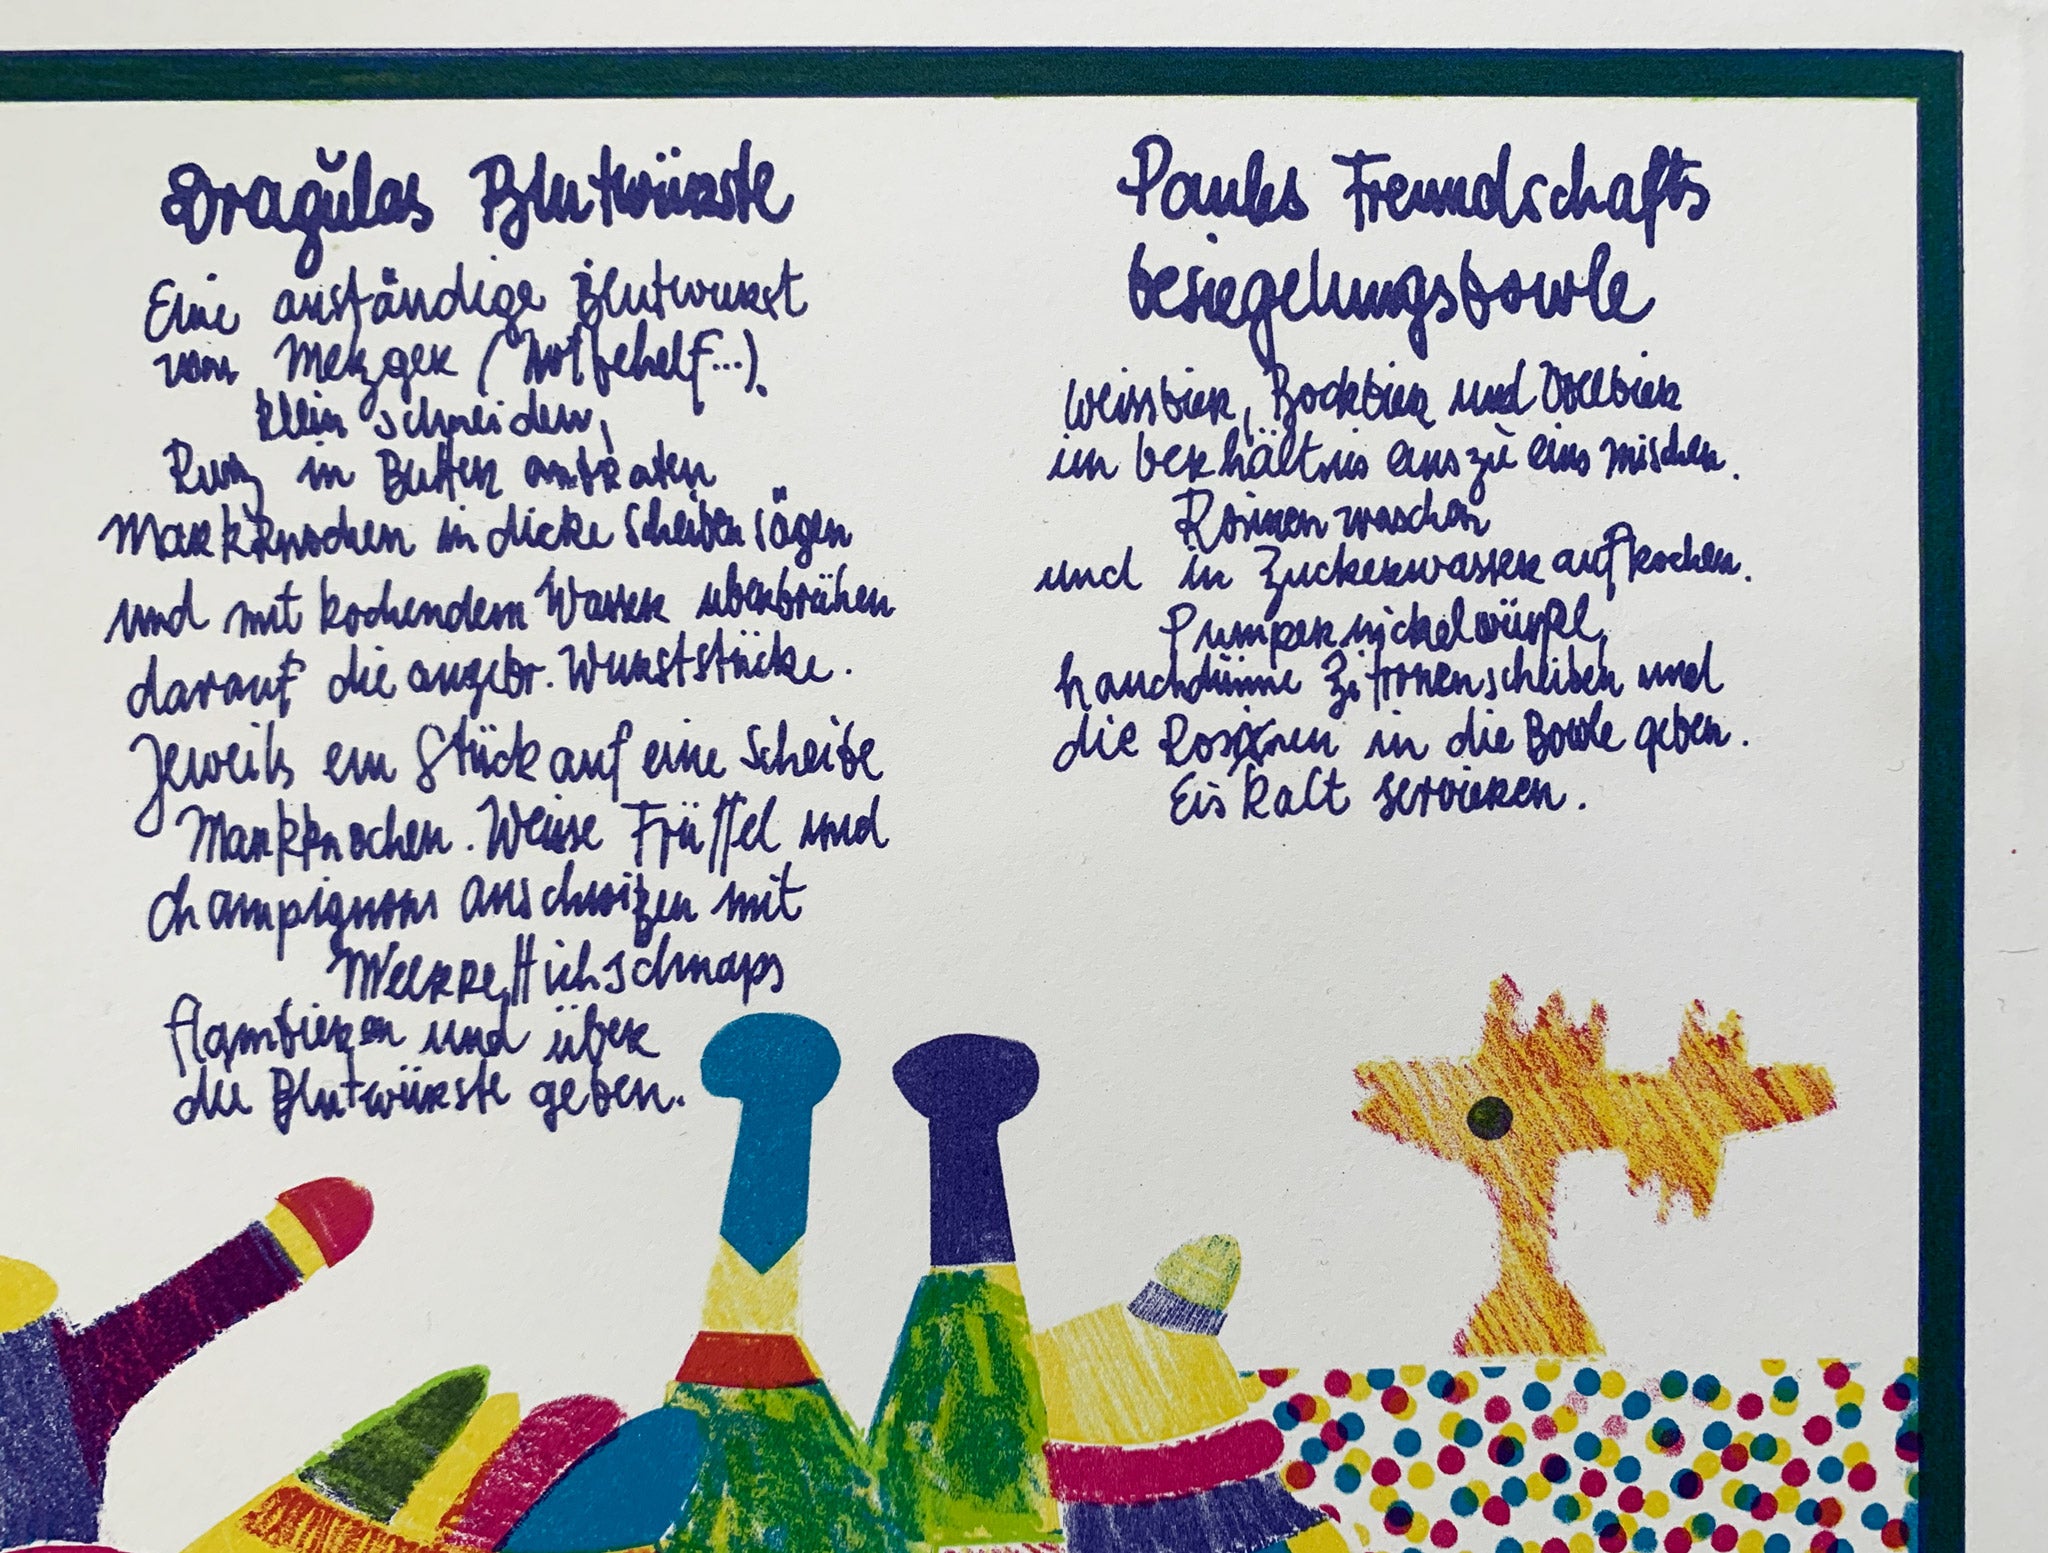 Dragŭlas Blutwürste
Eine anständige Blutwurst
vom Metzger (Notbehelf...).
klein schneiden,
Kurz in Butter anbraten
Markknochen in dicke Scheiben sägen
und mit kochendem Wasser überbrühen
darauf die angebr. Wurststücke.
Jeweils ein Stück auf eine Scheibe
Markknochen. Weisse Trüffel und
Champignons anschwizen mit
Meerrettichschnaps
flambieren und über
die Blutwürste geben.
Pauls Freundschafts
besiegelungsbowle
Weissbier, Bockbier und Vollbier
im Verhältnis eins zu eins mischen.
Rosinen waschen
und in Zuckerwasser aufkochen.
Pumpernickelwürfel,
hauchdünne Zitronenscheiben und
die Rosinen in die Bowle geben.
Eiskalt servieren.